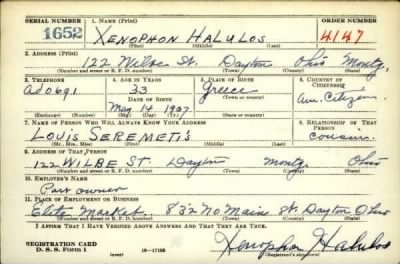 SERIAL NUMBER 1. NAME (Print) ORDER NUMBER
1652 XENOPHON HALULOS 4147
(First) (Middle) (Last)
2. ADDRESS (Print)
122 Wilbe St. Dayton Ohio Montg.
(Number and street or R. F. D. number) (Town) (County) (State)
3. TELEPHONE 4. AGE IN YEARS 5. PLACE OF BIRTH 6. COUNTRY OF CITIZENSHIP
AD0691 33 Greece Am. Citizen
DATE OF BIRTH
May 14 1907
(Exchange) (Number) (Mo.) (Day) (Yr.) (State or country)
7. NAME OF PERSON WHO WILL ALWAYS KNOW YOUR ADDRESS 8. RELATIONSHIP OF THAT PERSON
LOUIS SEREMETIS cousins
(Mr., Mrs., Miss) (First) (Middle) (Last)
9. ADDRESS OF THAT PERSON
122 WILBE ST. Dayton Montg. Ohio
(Number and street or R. F. D. number) (Town) (County) (State)
10. EMPLOYER'S NAME
Part owner
11. PLACE OF EMPLOYMENT OR BUSINESS
Elite Market 832 No Main St. Dayton Ohio
(Number and street or R. F. D. number) (Town) (County) (State)
I AFFIRM THAT I HAVE VERIFIED ABOVE ANSWERS AND THAT THEY ARE TRUE.
REGISTRATION CARD
D. S. S. Form 1 (over) 16—17105 Xenophon Halulos
(Registrant's signature)